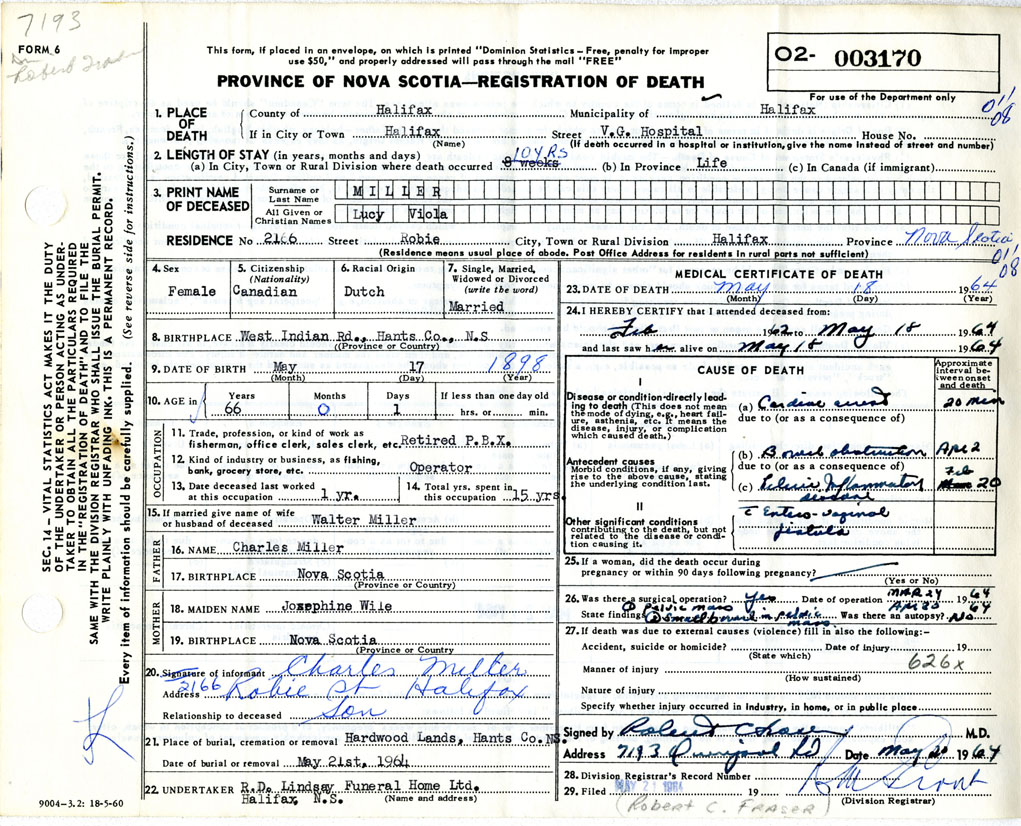 7193
FORM 6
Dr
Robert Fraser
This form, if placed in an envelope, on which is printed "Dominion Statistics – Free, penalty for improper
use $50," and properly addressed will pass through the mail "FREE"
O2- 003170
PROVINCE OF NOVA SCOTIA—REGISTRATION OF DEATH
For use of the Department only
011
08
1. PLACE OF DEATH
County of Halifax Municipality of Halifax
If in City or Town Halifax Street V.G. Hospital House No.
(Name) (If death occurred in a hospital or institution, give the name instead of street and number)
2. LENGTH OF STAY (in years, months and days)
(a) In City, Town or Rural Division where death occurred 8 weeks 10 YRS (b) In Province Life (c) In Canada (if immigrant)
3. PRINT NAME OF DECEASED
Surname or Last Name MILLER
All Given or Christian Names Lucy Viola
RESIDENCE No 2166 Street Robie City, Town or Rural Division Halifax Province Nova Scotia
(Residence means usual place of abode. Post Office Address for residents in rural parts not sufficient)
011
08
4. Sex
Female
5. Citizenship (Nationality)
Canadian
6. Racial Origin
Dutch
7. Single, Married, Widowed or Divorced (write the word)
Married
8. BIRTHPLACE West Indian Rd., Hants Co., N.S
(Province or Country)
9. DATE OF BIRTH May 17 1898
(Month) (Day) (Year)
10. AGE in
Years Months Days If less than one day old
66 0 1 hrs. or min.
OCCUPATION
11. Trade, profession, or kind of work as
fisherman, office clerk, sales clerk, etc. Retired P.B.X.
12. Kind of industry or business, as fishing,
bank, grocery store, etc. Operator
13. Date deceased last worked
at this occupation 1 yr.
14. Total yrs. spent in
this occupation 15 yrs
15. If married give name of wife
or husband of deceased Walter Miller
FATHER
16. NAME Charles Miller
17. BIRTHPLACE Nova Scotia
(Province or Country)
MOTHER
18. MAIDEN NAME Josephine Wile
19. BIRTHPLACE Nova Scotia
(Province or Country)
20. Signature of informant Charles Miller
Address 2166 Robie St Halifax
Relationship to deceased Son
21. Place of burial, cremation or removal Hardwood Lands, Hants Co. NS.
Date of burial or removal May 21st, 1964
22. UNDERTAKER R.D. Lindsay Funeral Home Ltd.
Halifax, N.S. (Name and address)
MEDICAL CERTIFICATE OF DEATH
23. DATE OF DEATH May 18 1964
(Month) (Day) (Year)
24. I HEREBY CERTIFY that I attended deceased from:
Feb 1962 to May 18 1964
and last saw her alive on May 18 1964
CAUSE OF DEATH
Approximate interval between onset and death
I
Disease or condition-directly leading to death (This does not mean the mode of dying, e.g., heart failure, asthenia, etc. It means the disease, injury, or complication which caused death.)
(a) Cardiac arrest 20 min
due to (or as a consequence of)
Antecedent causes
Morbid conditions, if any, giving rise to the above cause, stating the underlying condition last.
(b) Bowel obstruction Apr 2
due to (or as a consequence of)
(c) Pelvic Inflammatory disease Feb 20
II
Other significant conditions contributing to the death, but not related to the disease or condition causing it.
c Entero-vaginal
fistula
25. If a woman, did the death occur during
pregnancy or within 90 days following pregnancy?
(Yes or No)
26. Was there a surgical operation? Yes Date of operation MAR 24 1964
APR 20 64
State findings ① Pelvic mass
② Small bowel in pelvic mass Was there an autopsy? No
27. If death was due to external causes (violence) fill in also the following:–
Accident, suicide or homicide? Date of injury 19
(State which)
626x
Manner of injury
(How sustained)
Nature of injury
Specify whether injury occurred in industry, in home, or in public place
Signed by Robert C Fraser M.D.
Address 7193 Quinpool Rd Date May 20 1964
28. Division Registrar's Record Number
29. Filed MAY 21 1964 19
(Division Registrar)
(ROBERT C. FRASER)
SEC. 14 – VITAL STATISTICS ACT MAKES IT THE DUTY
OF THE UNDERTAKER OR PERSON ACTING AS UNDER-
TAKER TO OBTAIN ALL THE PARTICULARS REQUIRED
IN THE "REGISTRATION OF DEATH" AND TO FILE THE
SAME WITH THE DIVISION REGISTRAR WHO SHALL ISSUE THE BURIAL PERMIT.
WRITE PLAINLY WITH UNFADING INK. THIS IS A PERMANENT RECORD.
Every item of information should be carefully supplied. (See reverse side for instructions.)
9004–3.2: 18-5-60